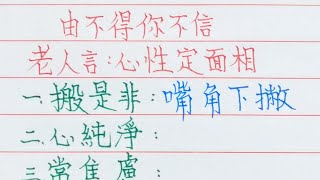 由不得你不信
老人言:心性定面相
一.搬是非:嘴角下撇
二.心純淨:
三.常焦慮: